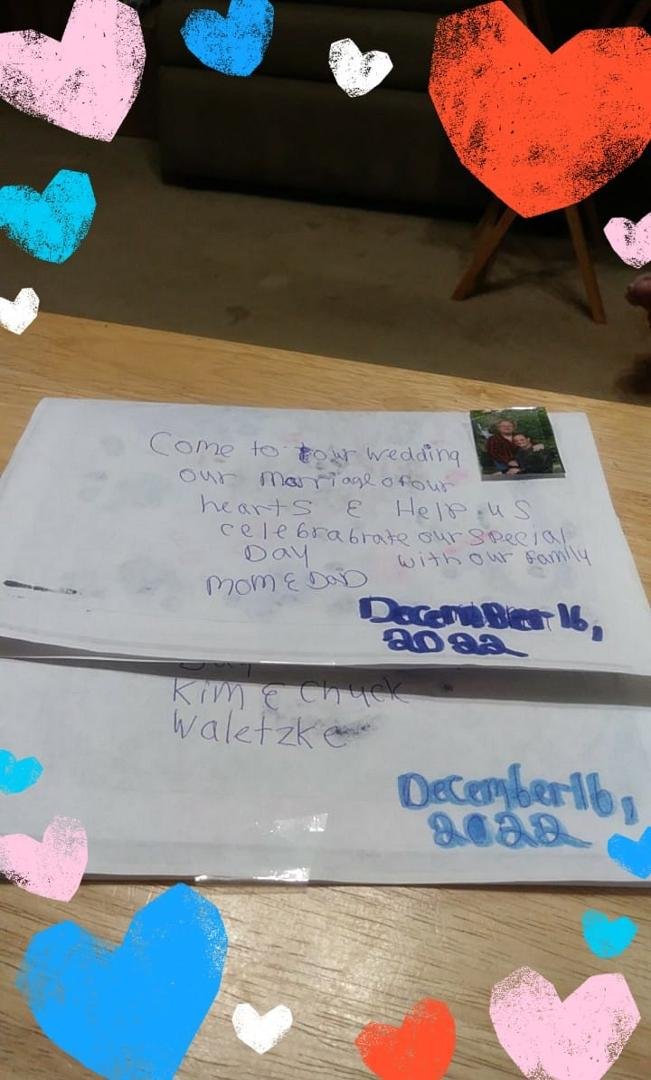 Come to our wedding
our marriage of our
hearts & Help us
celebrabrate our special
Day with our family
Mom & DaD
December 16,
2022
Kim & Chuck
Waletzke
December 16,
2022